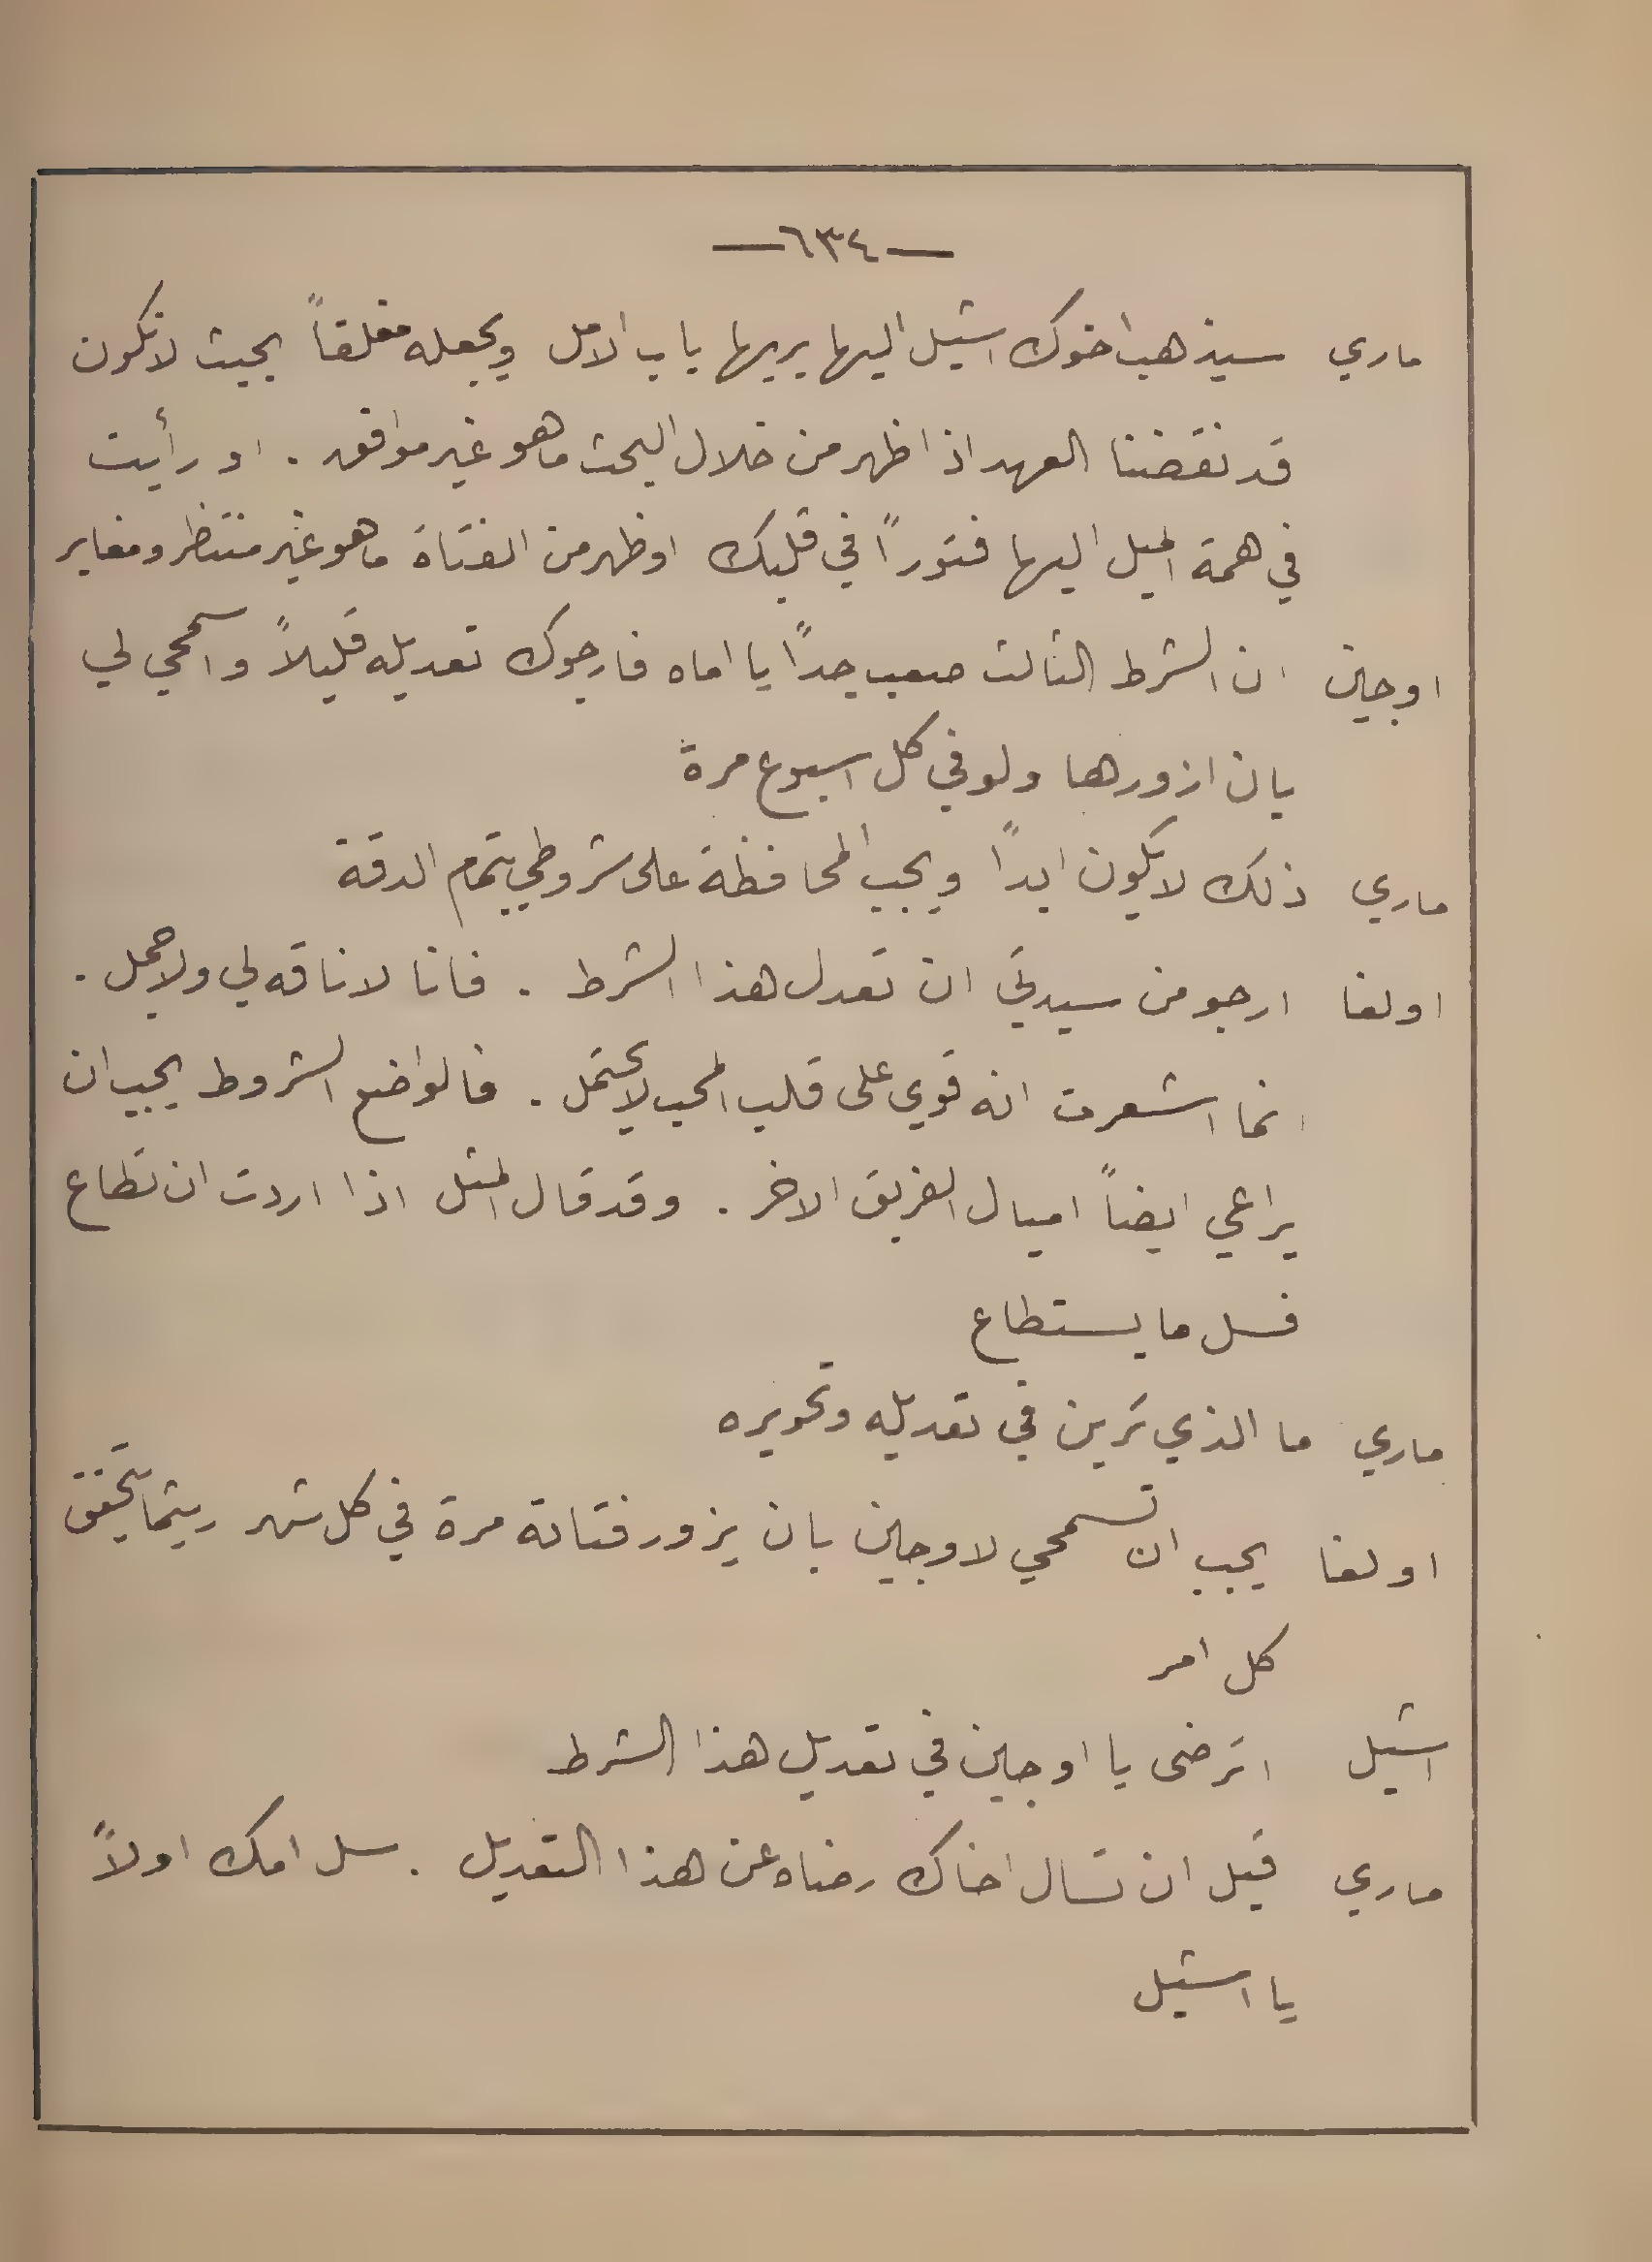 —٦٣٤—
ماري سيذهب اخوك اشيل اليها يريها باب الامل ويجعله مغلقاً بحيث لا نكون
قد نقضنا العهد اذا ظهر من خلال البحث ما هو غير موافق . او رأيت
في همة الميل اليها فتوراً في قلبك او ظهر من الفتاة ما هو غير منتظر ومغاير
اوجين ان الشرط الثالث صعب جداً يا اماه فارجوك تعديله قليلاً واسمحي لي
بان ازورها ولو في كل اسبوع مرة
ماري ذلك لا يكون ابداً ويجب المحافظة على شروطي بتمام الدقة
اولغا ارجو من سيدتي ان تعدل هذا الشرط . فانا لا ناقه لي ولا جمل .
انما اشعرت انه قوي على قلب المحب لا يحتمل . فالواضع الشروط يجب ان
يراعي ايضاً اميال الفريق الاخر . وقد قال المثل اذا اردت ان تطاع
فسل ما يستطاع
ماري ما الذي ترين في تعديله وتحويره
اولغا يجب ان تسمحي لاوجين بان يزور فتاته مرة في كل شهر ريثما يتحقق
كل امر
اشيل اترضى يا اوجين في تعديل هذا الشرط
ماري قبل ان تسال اخاك رضاه عن هذا التعديل . سل امك اولاً
يا اشيل